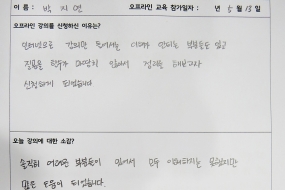 이 름 : 박 지 연 오프라인 교육 참가일자 : 년 5 월 13 일
오프라인 강의를 신청하신 이유는?
인터넷으로 강의만 들어서는 이해가 안되는 부분들도 있고
질문을 할수가 없어서 정리를 해보고자
신청하게 되었습니다
오늘 강의에 대한 소감?
솔직히 어려운 부분들이 있어서 모두 이해하지는 못했지만
많은 도움이 되었습니다.